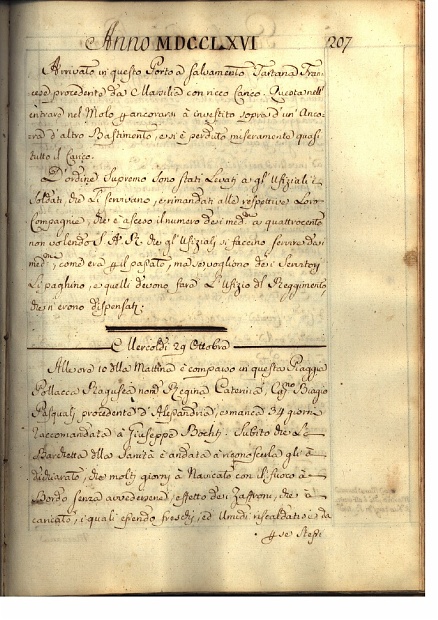 Anno MDCCLXVI 207
Arrivato in questo Porto a salvamento Tartana Fran-
cese procedente da Marsilia con ricco Carico. Questa nell'
entrare nel Molo p ancorarsi à investito sopra d'un Anco-
ra d'altro Bastimento, e si è perduto miseramente quasi
tutto il Carico.
D'ordine Supremo sono stati Levati a gl'Ufiziali i
Soldati, che Li servivano, e rimandati alle respettive Loro
Compagnie, che è asceso il numero dei med.mi a quattrocento
non volendo S. A. R. che gl'Ufiziali si faccino servire dai
med.mi, come era p il passato, ma se vogliono dei Servitori
Li paghino, e quelli devono fare L'Ufizio del Reggimento,
che n'erono dispensati;
Mercoldì 29 Ottobre
Alle ore 10 della Mattina è comparso in questa Piaggia
Pollacca Ragusea nom.ta Regina Caterina, Cap.no Biagio
Pasquali procedente d'Alessandria, e manca 34 giorni
raccomandata à Giuseppe Bochti. Subito che La
Barchetta della Sanità è andata à riconoscerla gli à
dichiarato, che molti giorni à Navicato con il fuoco à
Bordo senza avvedersene, effetto dei Zaffroni, che à
caricato, i quali essendo freschi, ed Umidi riscaldati si da
p se stessi